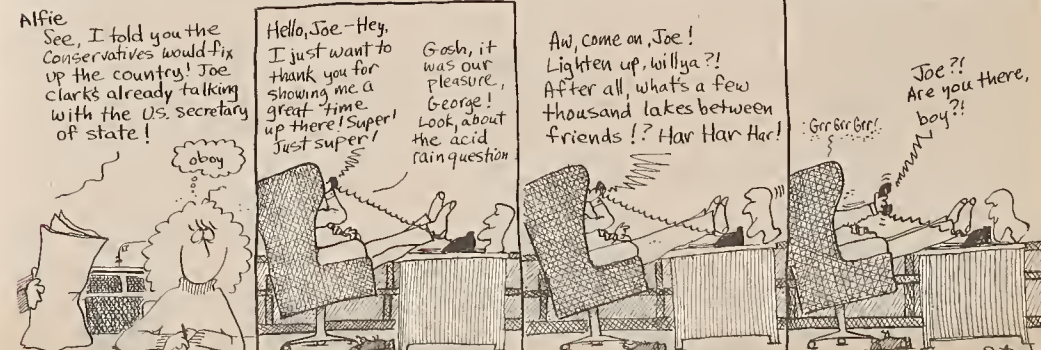 Alfie
See, I told you the
Conservatives would fix
up the country! Joe
Clark's already talking
with the U.S. secretary
of state!
oboy
Hello, Joe - Hey,
I just want to
thank you for
showing me a
great time
up there! Super!
Just super!
Gosh, it
was our
pleasure,
George!
Look, about
the acid
rain question
Aw, come on, Joe!
Lighten up, willya?!
After all, what's a few
thousand lakes between
friends!? Har Har Har!
Grr Grr Grr!
Joe?!
Are you there,
boy?!